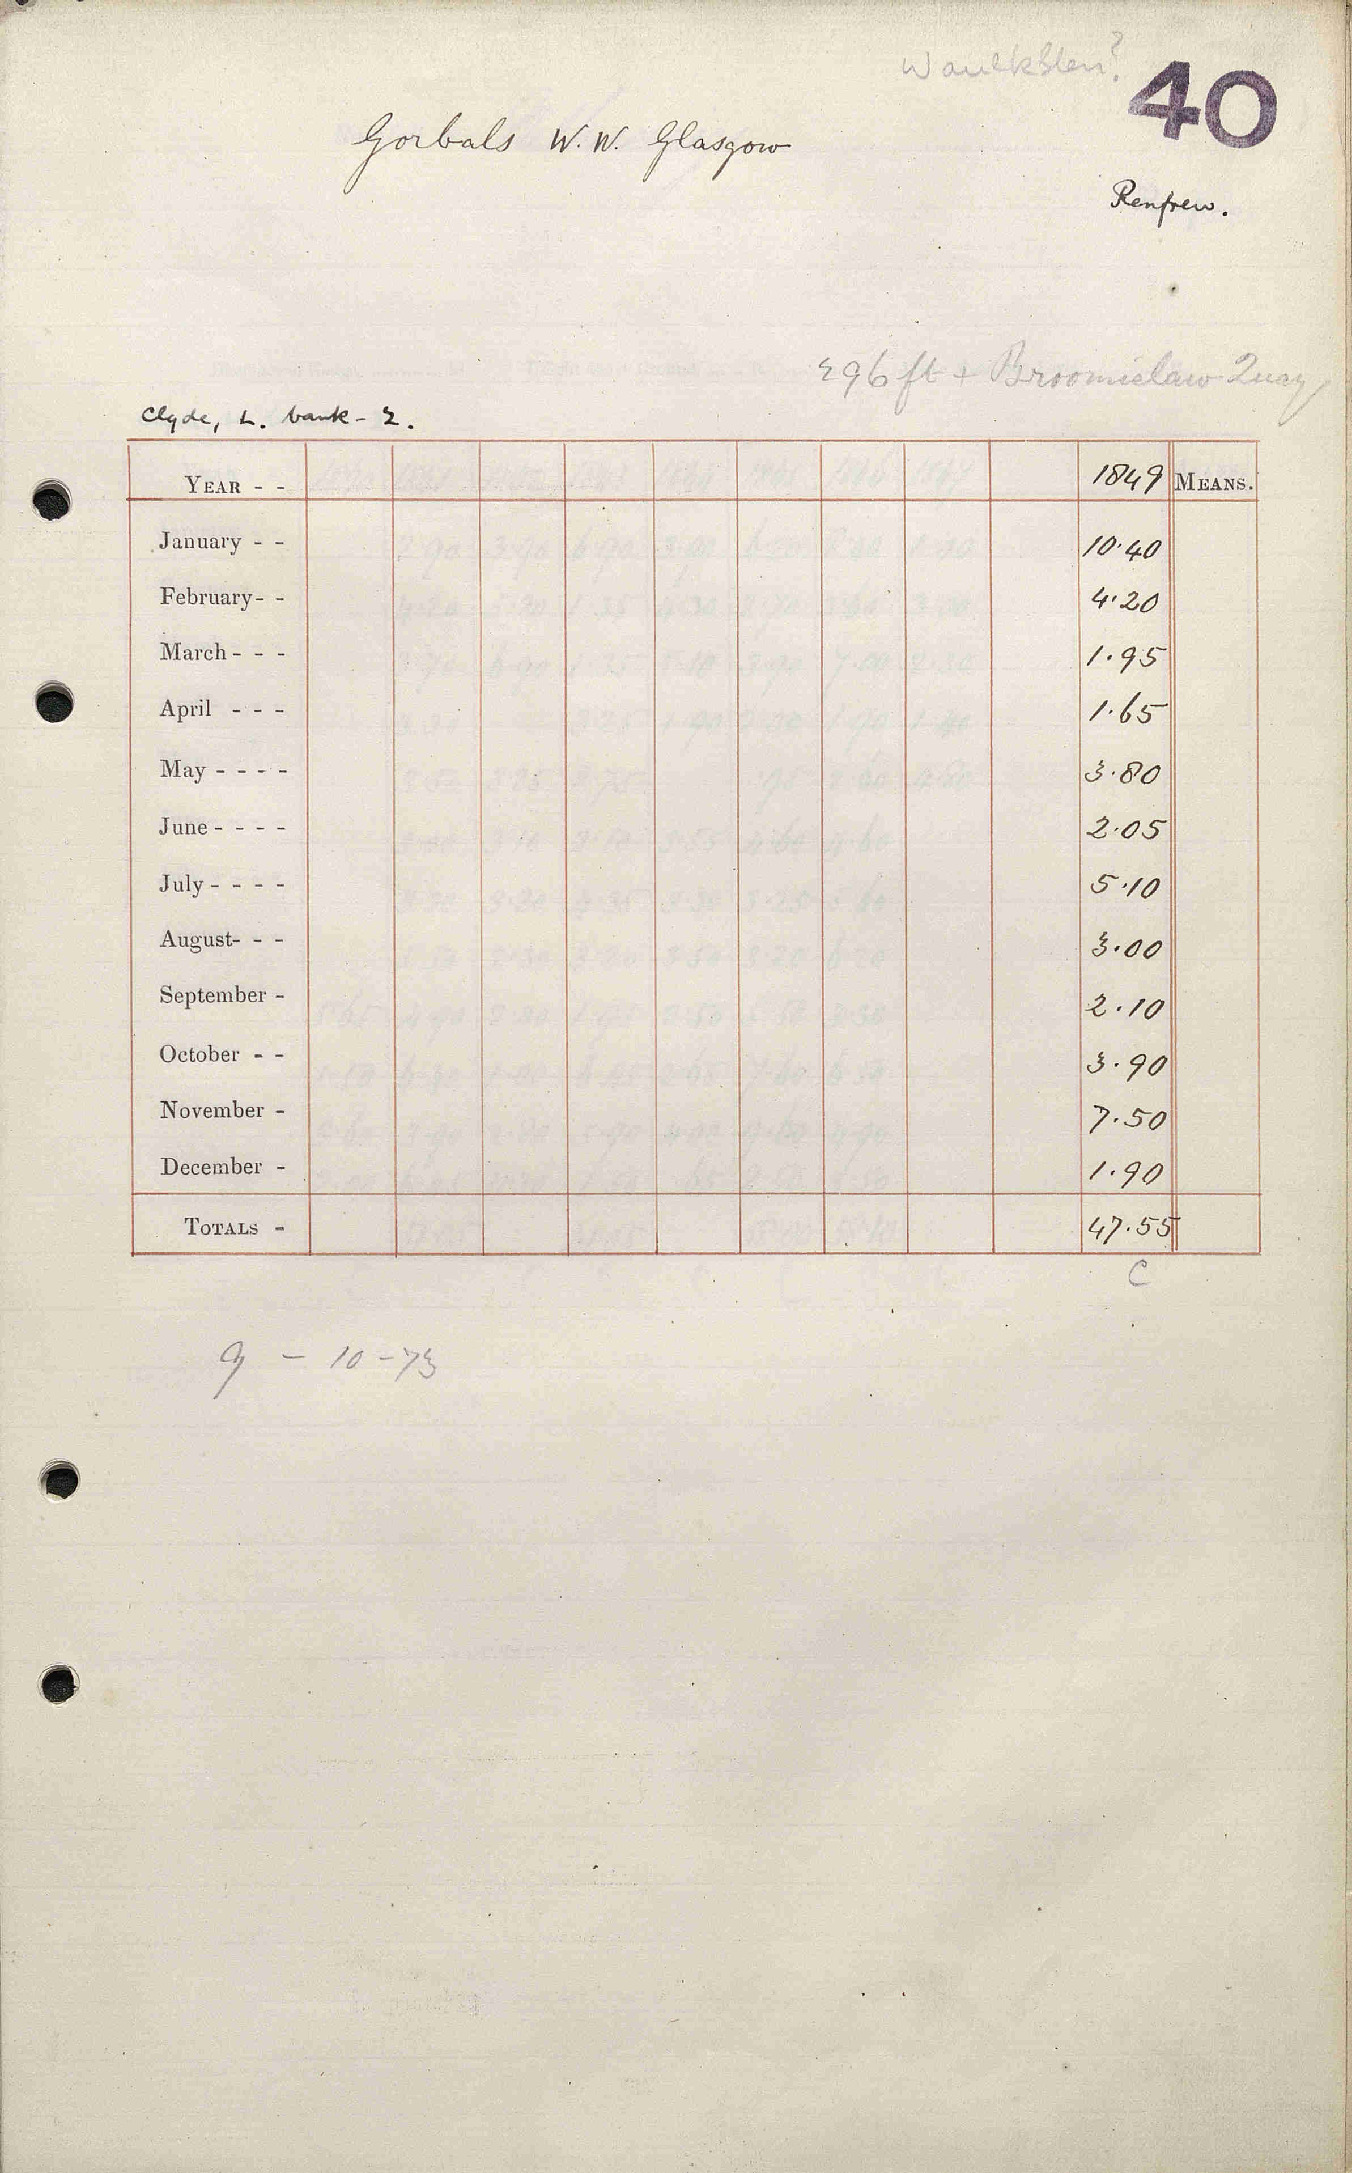 40
Gorbals W. W. Glasgow
Renfrew.
296 ft + Broomielaw Quay
Clyde, L. bank - 2.
YEAR - - 1849 MEANS.
January - - 10.40
February - - 4.20
March - - - 1.95
April - - - 1.65
May - - - - 3.80
June - - - - 2.05
July - - - - 5.10
August - - - 3.00
September - 2.10
October - - 3.90
November - 7.50
December - 1.90
TOTALS - 47.55
C
9 - 10 - 73